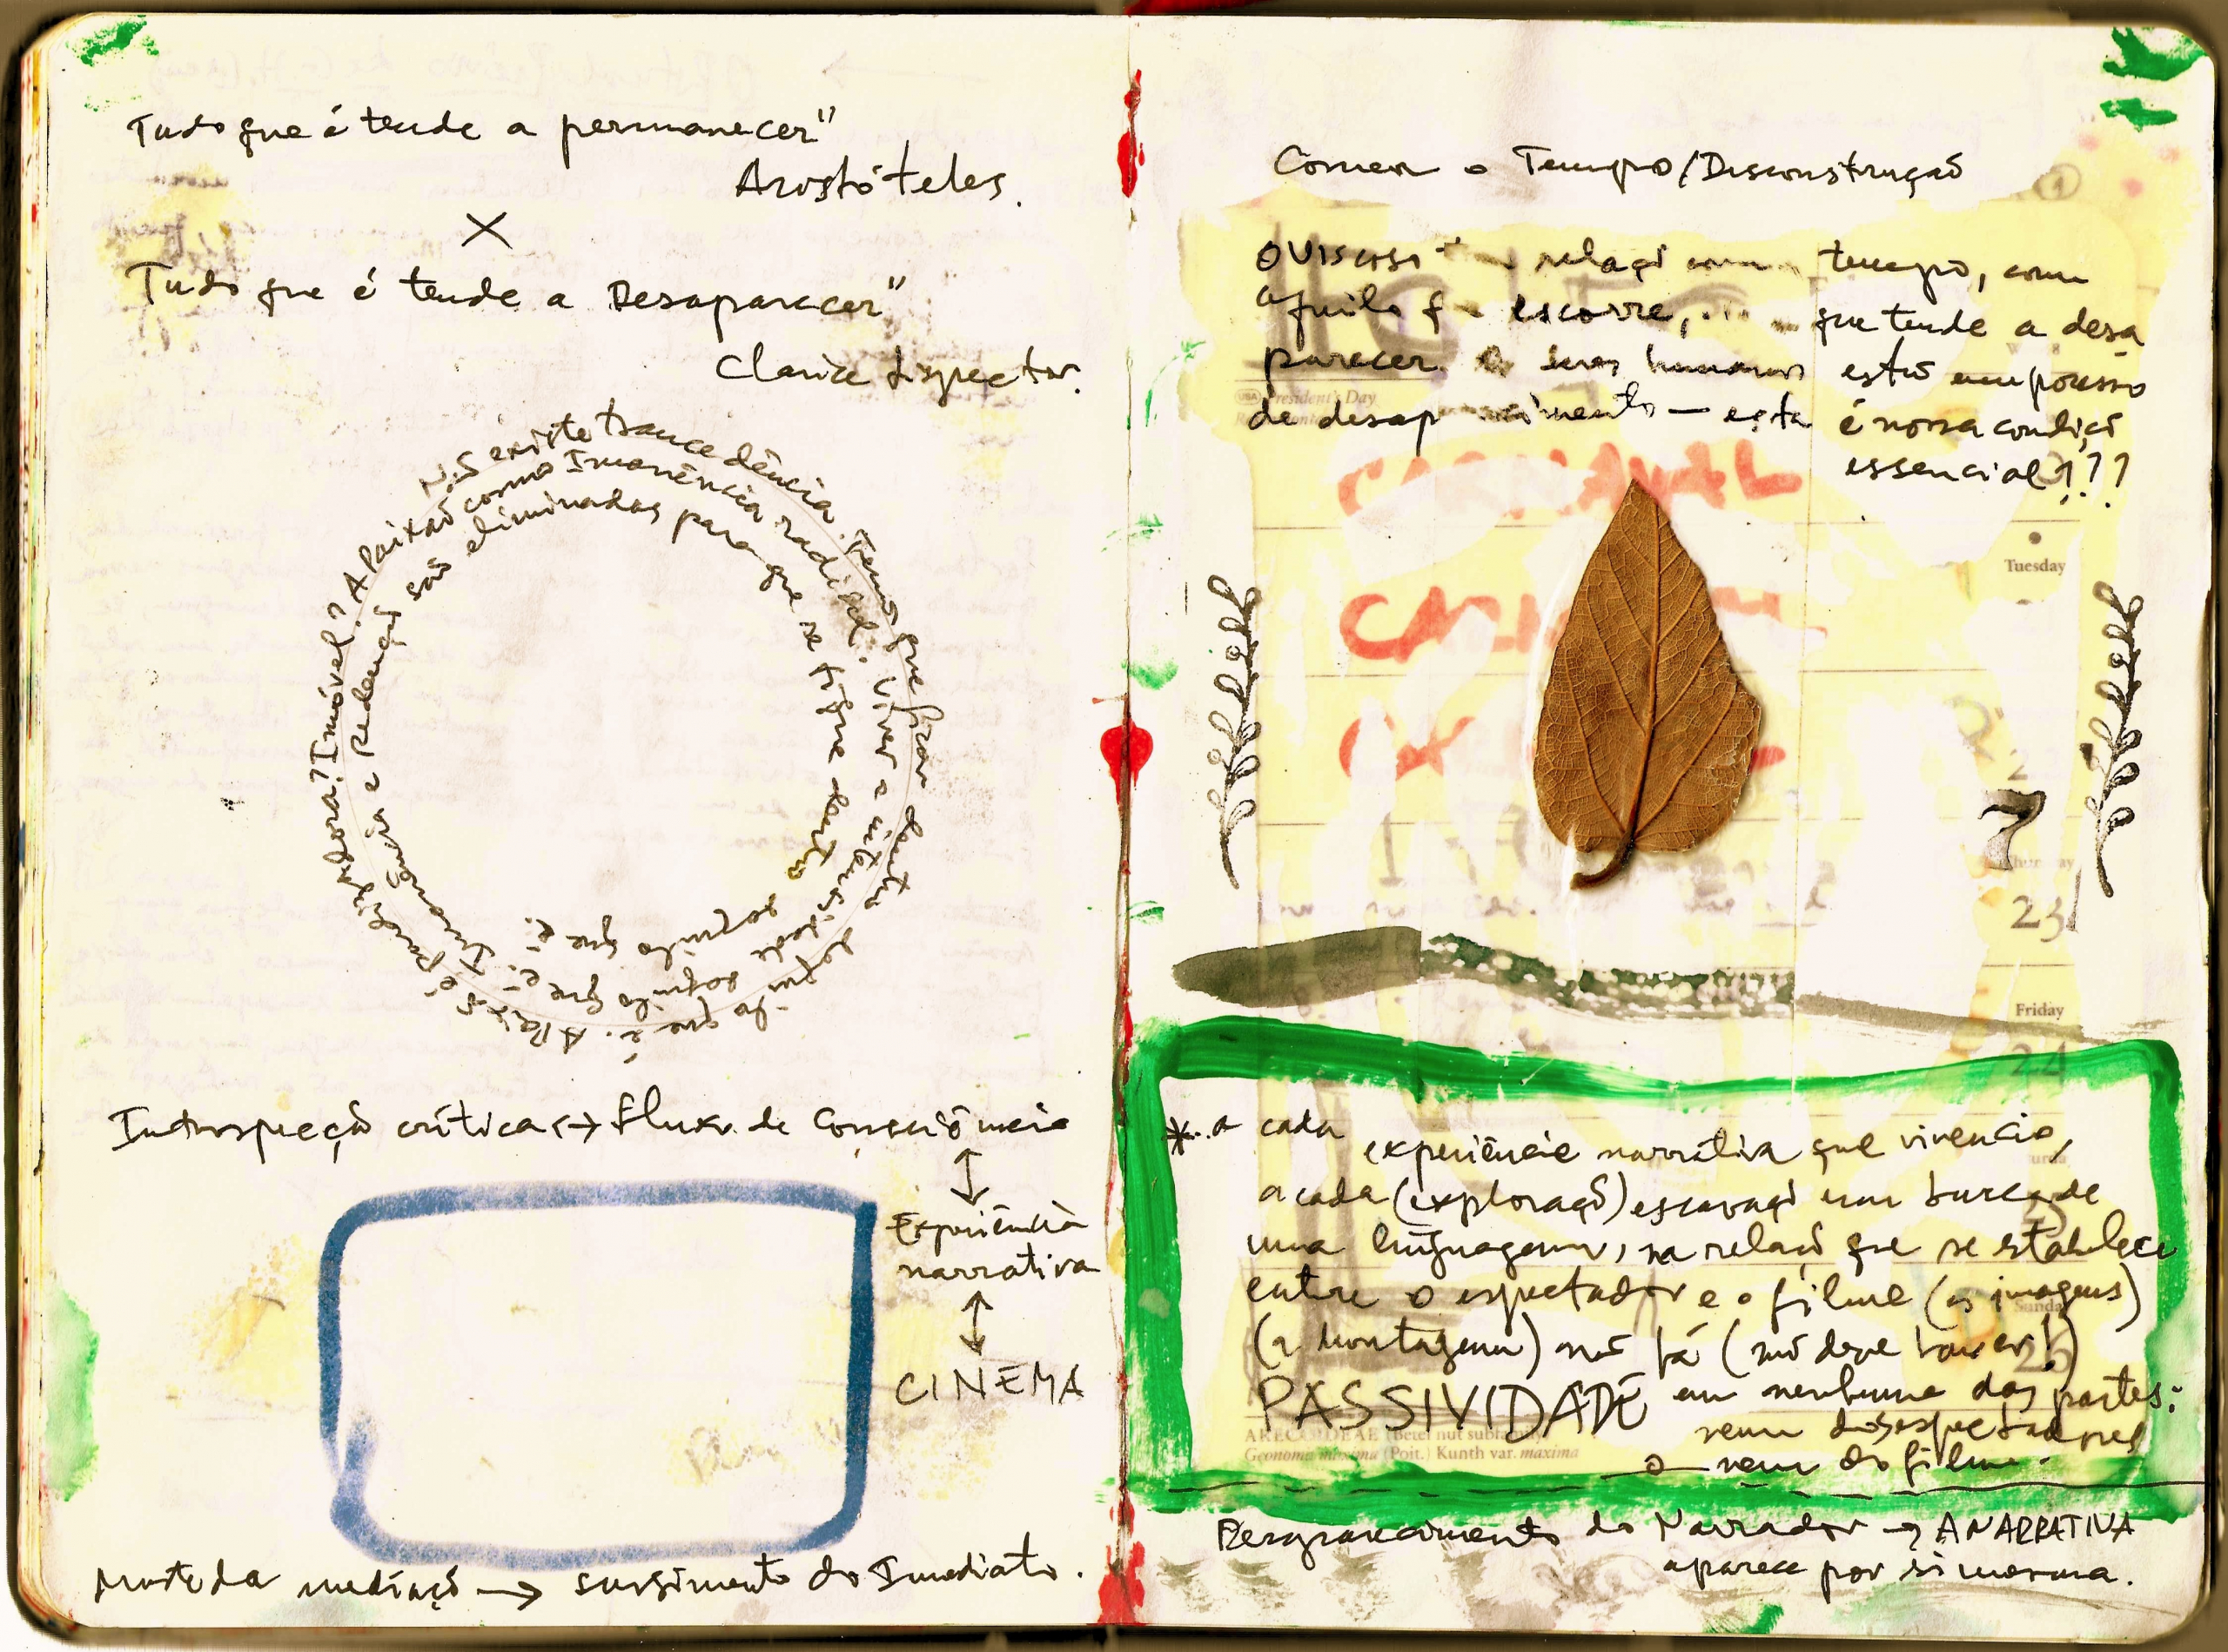 Tudo que é tende a permanecer"
Aristóteles.
X
Tudo que é tende a Desaparecer"
Clarice Lispector.
Não existe trancedência. Temos que ficar dentro do que é. A Paixão é
Imóvel? A Paixão como Imanência radical. Viver a intensidade daquilo que é.
e Redenção são eliminadas para que se fique dentro daquilo que é.
Introspecção crítica <-> Fluxo de Consciência
↕
Experiência
narrativa
↕
CINEMA
Morte da mediação → surgimento do Imediato.
Comer o Tempo/Desconstrução
O viscoso relação com tempo, com
aquilo q escorre, que tende a desa
parecer. seres humanos estão em processo
de desaparecimento — esta é nossa condição
essencial???
President's Day
Tuesday
7
23
Friday
24
*...a cada
experiência narrativa que vivencio,
a cada (exploração) escavação em busca de
uma linguagem, na relação que se estabelece
entre o espectador e o filme (as imagens)
(a montagem) não há (não deve haver!)
PASSIVIDADE em nenhuma das partes:
nem dos espectadores
nem do filme.
Sunday
26
ARECOIDEAE (Betel nut subfamily)
Geonoma maxima (Poit.) Kunth var. maxima
Desaparecimento do Narrador → A NARRATIVA
aparece por si mesma.